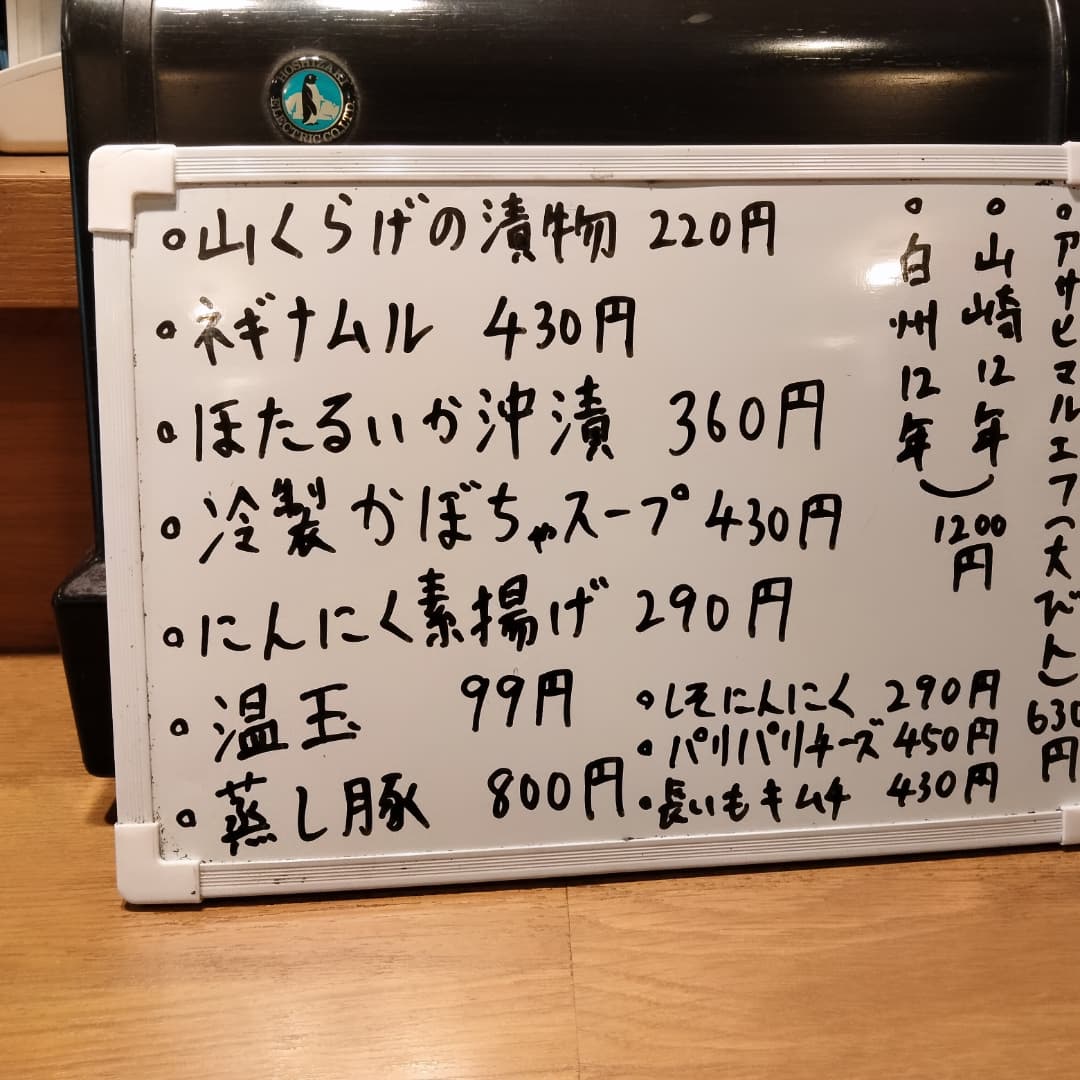 HOSHIZAKI
ELECTRIC CO.,LTD.
山くらげの漬物 220円
ネギナムル 430円
ほたるいか沖漬 360円
冷製かぼちゃスープ 430円
にんにく素揚げ 290円
温玉 99円
蒸し豚 800円
シソにんにく 290円
パリパリチーズ 450円
長いもキムチ 430円
アサヒマルエフ(大びん) 630円
山崎12年
白州12年
1200円